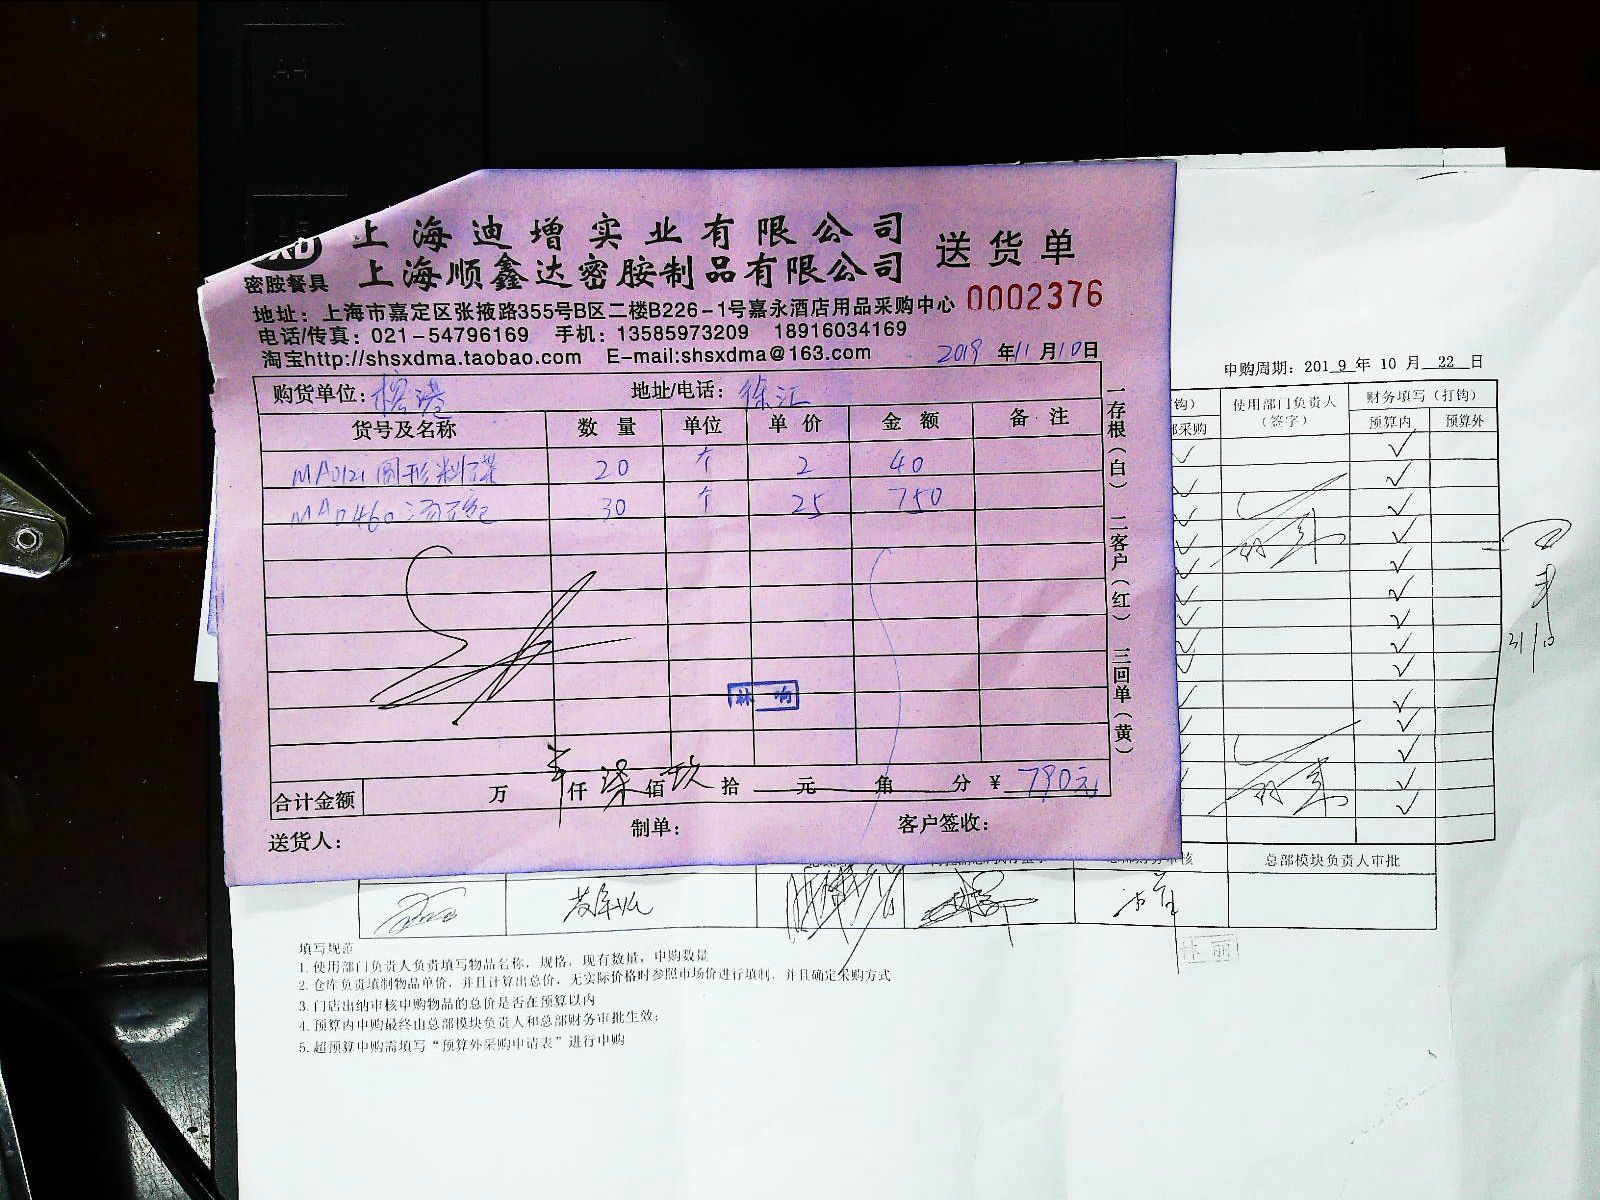 上海迪增实业有限公司
上海顺鑫达密胺制品有限公司 送货单
密胺餐具
0002376
地址：上海市嘉定区张掖路355号B区二楼B226-1号嘉永酒店用品采购中心
电话/传真：021-54796169 手机：13585973209 18916034169
淘宝http://shsxdma.taobao.com E-mail:shsxdma@163.com
2019年11月10日
购货单位：榕港 地址/电话：徐汇
货号及名称 数量 单位 单价 金额 备注
MA0121圆形料碟 20 个 2 40
MA0460 30 个 25 750
林
合计金额 万 仟 柒佰 玖拾 元 角 分 ¥ 790元
送货人： 制单： 客户签收：
一存根（白） 二客户（红） 三回单（黄）
申购周期：2019年10月22日
钩） 使用部门负责人（签字） 财务填写（打钩）
采购 预算内 预算外
31/10
总部模块负责人审批
林丽
填写规范
1.使用部门负责人负责填写物品名称，规格，现有数量，申购数量
2.仓库负责填制物品单价，并且计算出总价，无实际价格时参照市场价进行填制，并且确定采购方式
3.门店出纳审核申购物品的总价是否在预算以内
4.预算内申购最终由总部模块负责人和总部财务审批生效；
5.超预算申购需填写“预算外采购申请表”进行申购